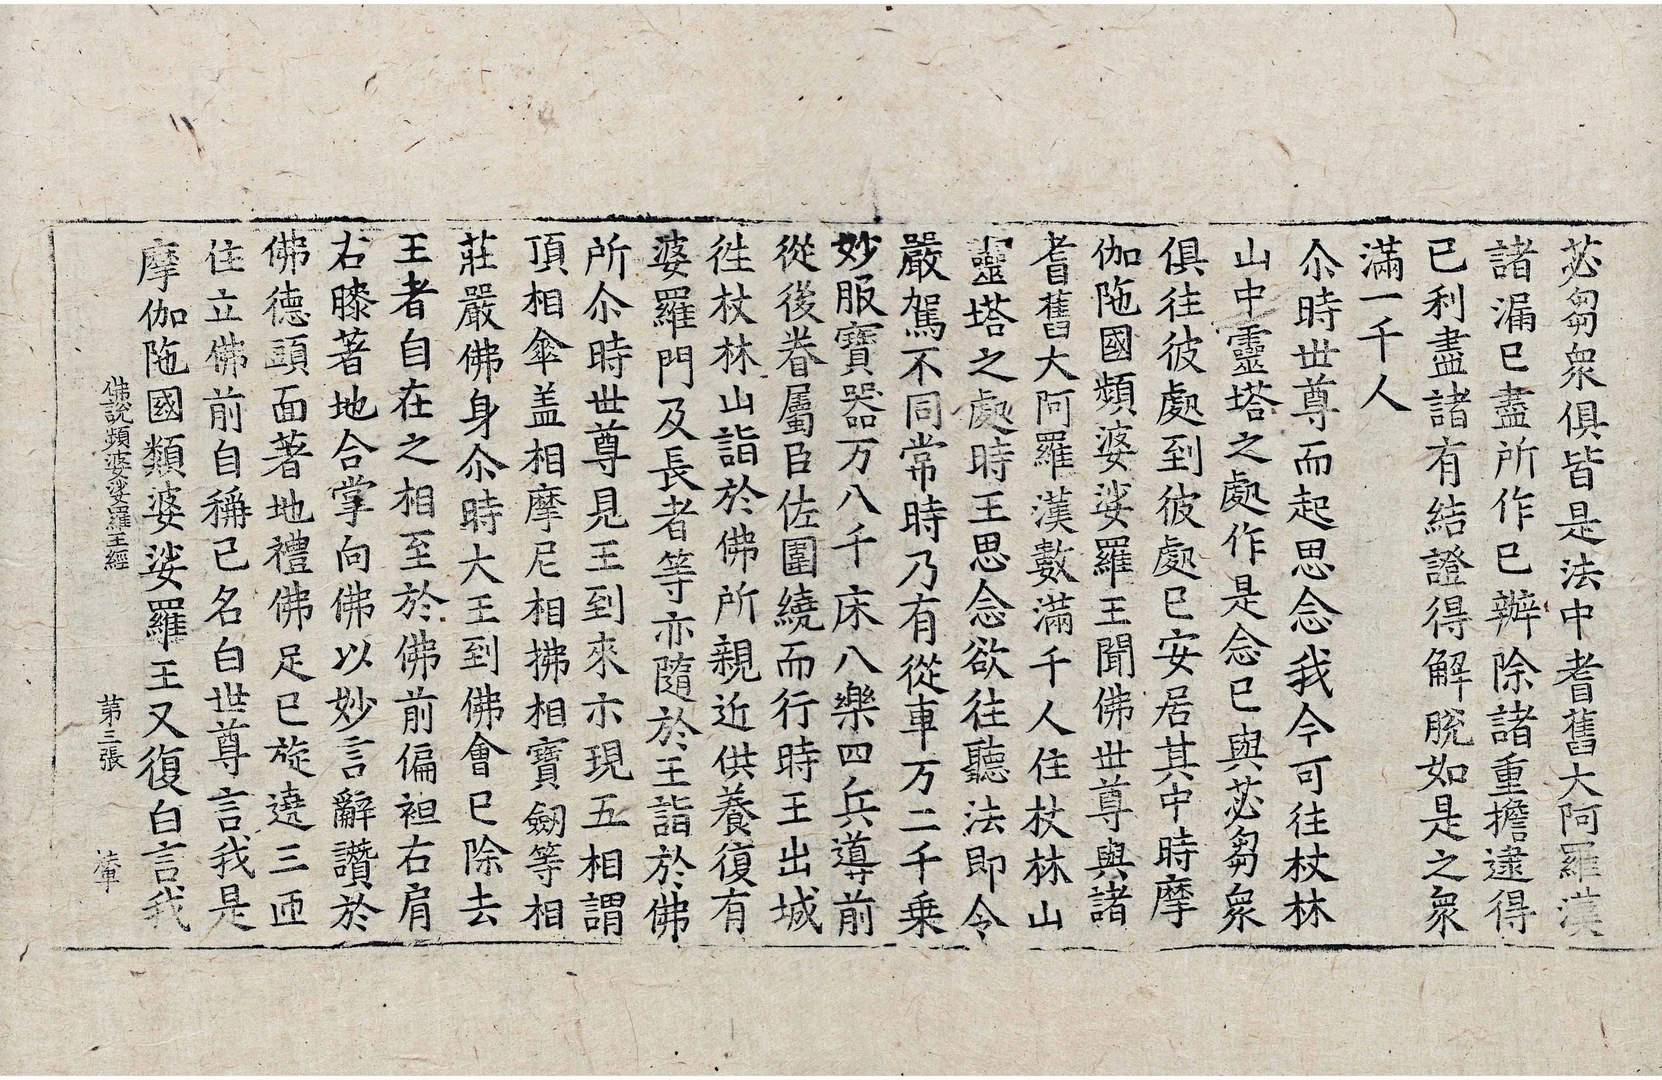 苾芻衆俱皆是法中耆舊大阿羅漢
諸漏已盡所作已辦除諸重擔逮得
已利盡諸有結證得解脫如是之衆
滿一千人
尒時世尊而起思念我今可往杖林
山中靈塔之處作是念已與苾芻衆
俱往彼處到彼處已安居其中時摩
伽陁國頻婆娑羅王聞佛世尊與諸
耆舊大阿羅漢數滿千人住杖林山
靈塔之處時王思念欲往聽法即令
嚴駕不同常時乃有從車万二千乗
妙服寶器万八千床八樂四兵導前
從後眷屬臣佐圍繞而行時王出城
徃杖林山詣於佛所親近供養復有
婆羅門及長者等亦隨於王詣於佛
所尒時世尊見王到來亦現五相謂
頂相傘盖相摩尼相拂相寶劒等相
莊嚴佛身尒時大王到佛會已除去
王者自在之相至於佛前偏袒右肩
右膝著地合掌向佛以妙言辭讚於
佛德頭面著地禮佛足已旋遶三匝
住立佛前自稱已名白世尊言我是
摩伽陁國頻婆娑羅王又復白言我
佛說頻婆娑羅王經 第三張